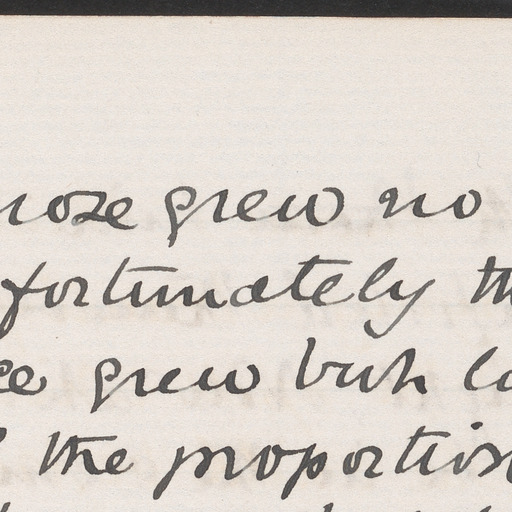 nose grew no
fortunately th
ce grew both lo
the proportion